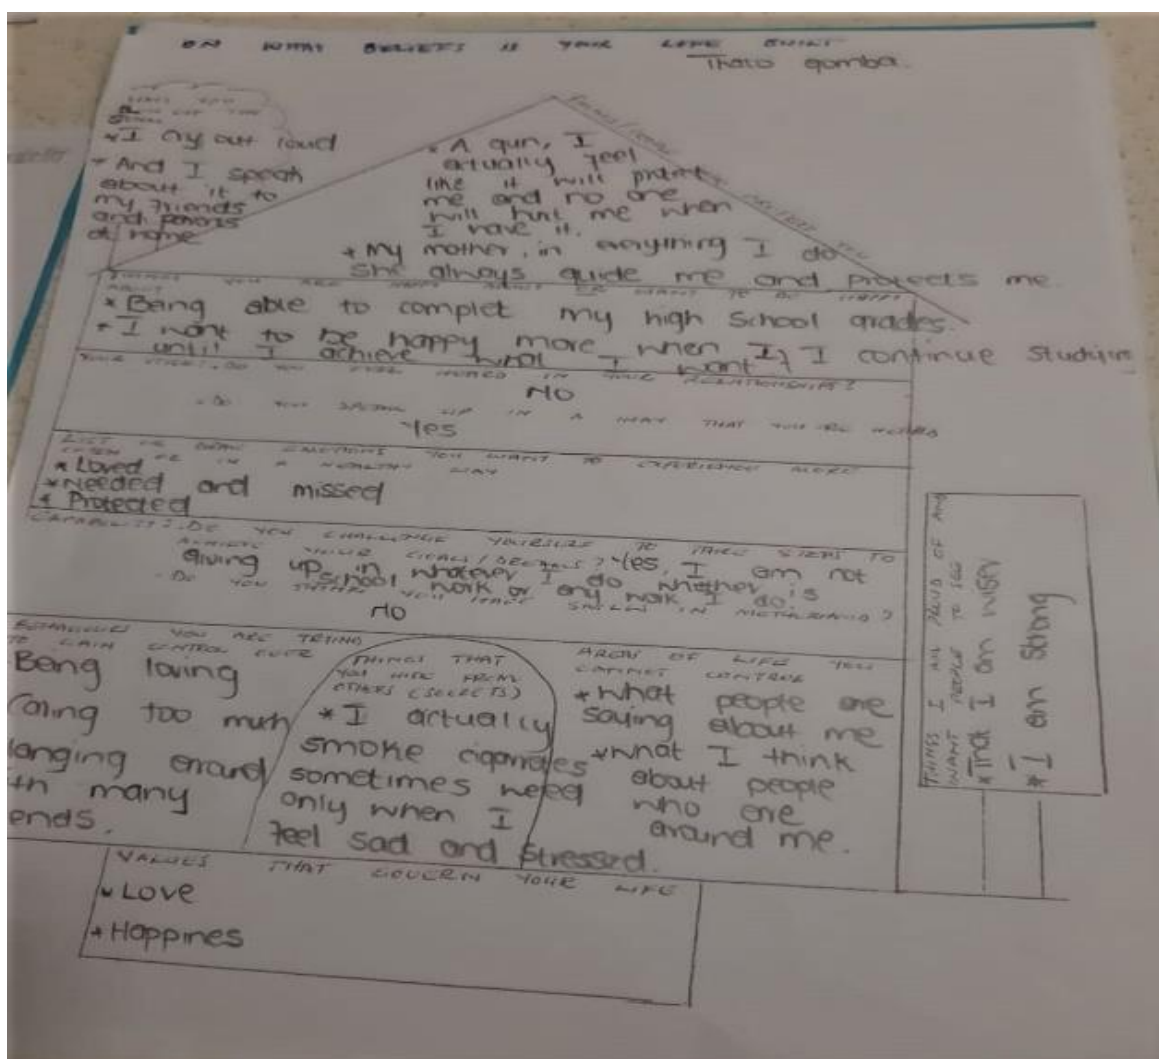 ON WHAT BELIEFS IS YOUR LIFE BUILT
Thato gomba.
STEAM
* I cry out loud
* And I speak
about it to
my friends
and parents
at home
* A gun, I
actually feel
like it will protect
me and no one
will hurt me when
I have it.
* My mother, in everything I do
she always guide me and protects me.
THINGS YOU ARE HAPPY ABOUT OR WANT TO BE HAPPY
ABOUT
* Being able to complet my high school grades.
* I want to be happy more when If I continue studying
until I achieve what I want
DO YOU FEEL IN YOUR RELATIONSHIPS?
NO
- DO YOU SPEAK UP IN A WAY THAT YOU ARE HEARD
Yes
LIST OR DRAW EMOTIONS YOU WANT TO EXPERIENCE MORE
OFTEN OR IN A HEALTHY WAY
* Loved
* Needed and missed
* Protected
CAPABILITY: DO YOU CHALLENGE YOURSELF TO TAKE STEPS TO
ACHIEVE YOUR GOALS/DREAMS? Yes, I am not
Giving up in whatever I do whether is
school work or any work I do.
- DO YOU THINK YOU HAVE SKILLS IN ?
NO
BEHAVIOURS YOU ARE TRYING
TO GAIN CONTROL OVER
Being loving
Caring too much
anging around
th many
ends.
THINGS THAT
YOU HIDE FROM
OTHERS (SECRETS)
* I actually
smoke cigarates
sometimes weed
only when I
feel sad and stressed.
AREAS OF LIFE YOU
CANNOT CONTROL
* what people are
saying about me
* what I think
about people
who are
around me.
THINGS I AM PROUD OF AND
WANT PEOPLE TO SEE
* That I am wiser
* I am strong
VALUES THAT GOVERN YOUR LIFE
* Love
* Happines